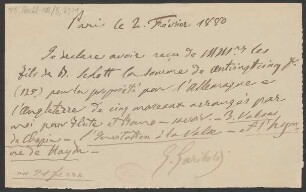 Paris le 2 Février 1880
Je déclare avoir reçu de MM. les
fils de B. Schott la somme de cent vingt cinq f.
(125) pour la propriété pour l'Allemagne et
l'Angleterre de cinq morceaux arrangés par
moi pour Flûte et Piano – savoir – 3 Valses
de Chopin – l'Invitation à la Valse – et l'Hym
ne de Haydn –
G. Gariboldi